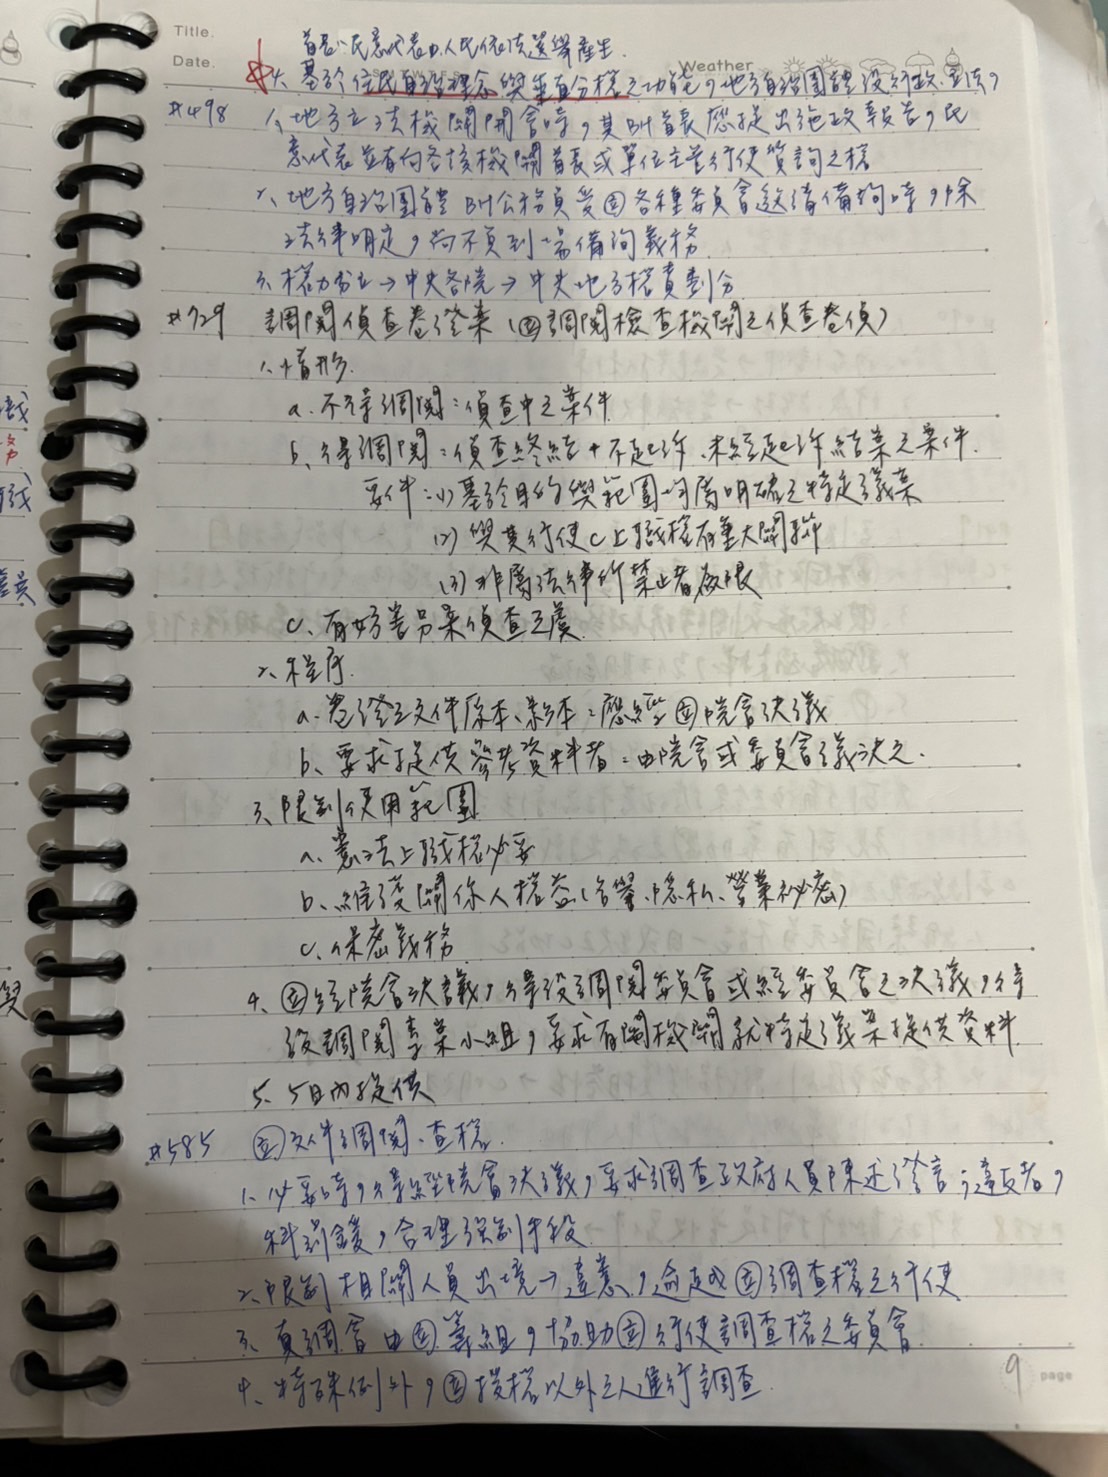 Title.
Date.
Weather
首長、民意代表由人民依法選舉產生.
4. 基於住民自治理念與垂直分權之功能，地方自治團體設行政、立法，
#498 1、地方立法機關開會時，其BH首長應提出施政報告，民
意代表並有向各該機關首長或單位主管行使質詢之權
2、地方自治團體BH公務員受立各種委員會邀請備詢時，除
法律明定，尚不負到場備詢義務
3、權力分立→中央各院→中央地方權責劃分
#729 調閱偵查卷證案（立調閱檢查機關之偵查卷偵）
1、情形.
a. 不得調閱：偵查中之案件
b、得調閱：偵查終結+不起訴、未經起訴結案之案件.
要件：(1) 基於目的與範圍均屬明確之特定議案
(2) 與其行使C上職權有重大關聯
(3) 非屬法律所禁止者為限
c、有妨害另案偵查之虞
2、程序.
a. 卷證之文件原本、影本：應經立院會決議
b、要求提供參考資料者：由院會或委員會議決之.
3、限制使用範圍
a、憲法上職權必要
b、維護關係人權益（名譽、隱私、營業秘密）
c、保密義務
4、立經院會決議，得設調閱委員會或經委員會之決議，得
設調閱專案小組，要求有關機關就特定議案提供資料
5、5日內提供
#585 立文件調閱、查權.
1、必要時，得經院會決議，要求調查政府人員陳述證言；違反者，
科罰鍰，合理強制手段
2、限制相關人員出境→違憲，逾越立調查權之行使
3、真調會由立籌組，協助立行使調查權之委員會.
4、特殊例外，立授權以外之人進行調查.
9 page